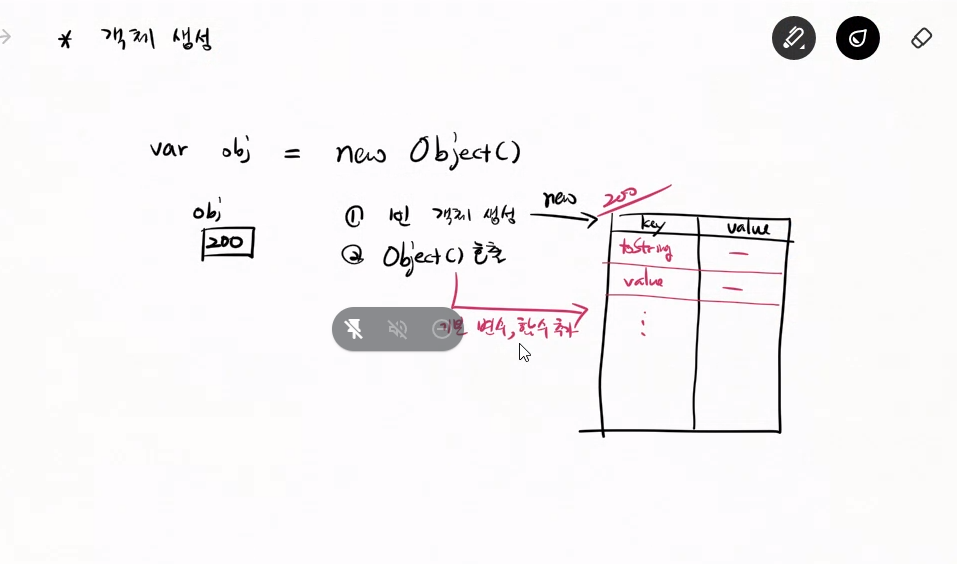 * 객체 생성
var obj = new Object()
obj
200
① 빈 객체 생성
new
200
② Object() 호출
변수, 함수 추가
key value
toString —
value —
⋮